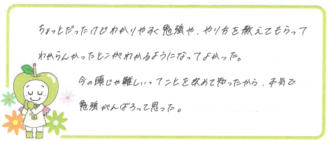 ちょっとだったけどわかりやすく勉強や、やり方を教えてもらって
わからんかったとこがわかるようになってよかった。
今の頭じゃ難しいってことを改めて知ったから、本気で
勉強がんばろうって思った。